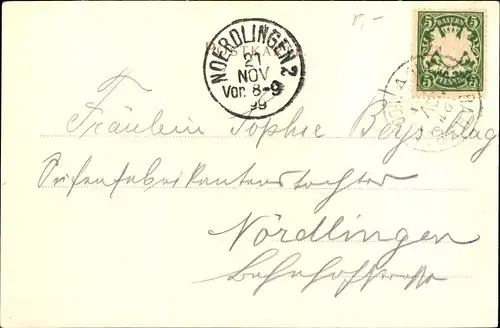 r,-
5 BAYERN 5
5 PFENNIG 5
NOERDLINGEN 2
21
NOV
Vor. 8-9
99
Fräulein Sophie Beyschlag
Seifenfabrikantenstochter
Nördlingen
Bahnhofstrasse